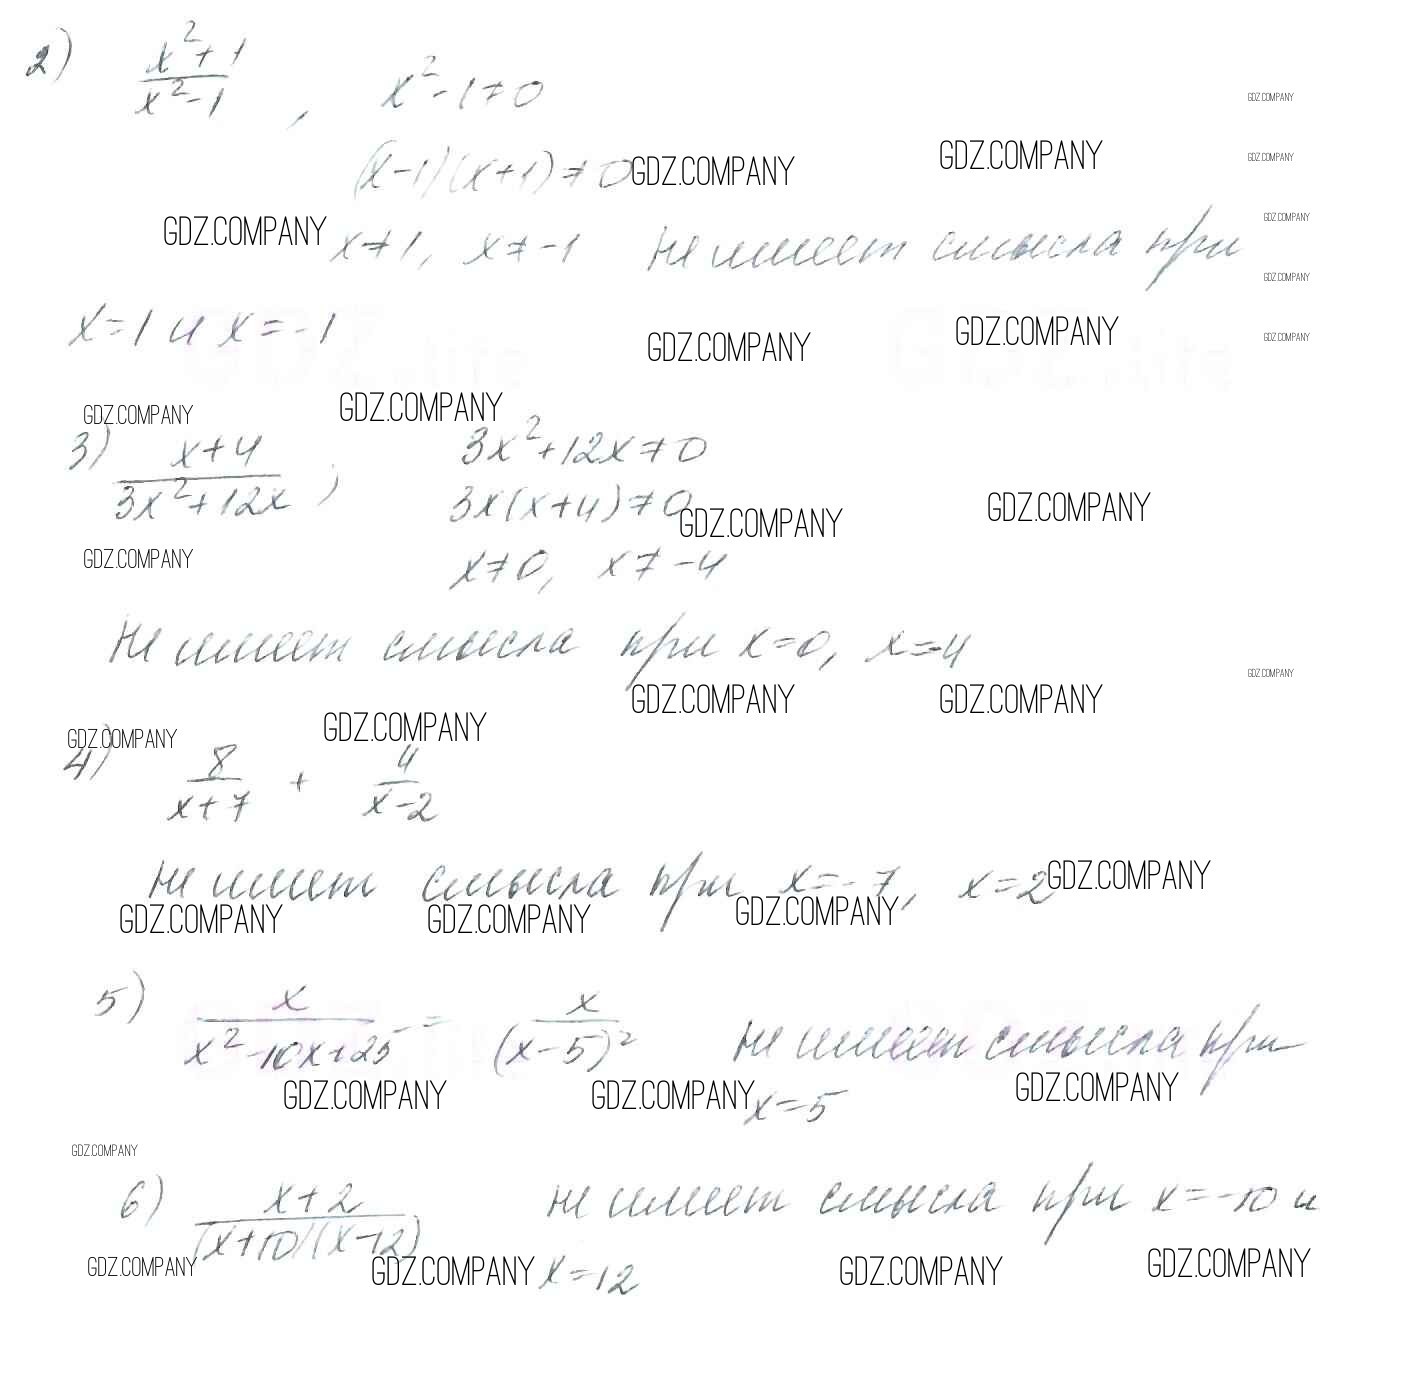 2) (x²+1)/(x²-1), x²-1≠0
(x-1)(x+1)≠0 GDZ.COMPANY GDZ.COMPANY
GDZ.COMPANY x≠1, x≠-1 не имеет смысла при
x=1 и x=-1
GDZ.COMPANY GDZ.COMPANY
GDZ.COMPANY GDZ.COMPANY
3) (x+4)/(3x²+12x), 3x²+12x≠0
3x(x+4)≠0 GDZ.COMPANY GDZ.COMPANY
GDZ.COMPANY x≠0, x≠-4
Не имеет смысла при x=0, x=-4
GDZ.COMPANY GDZ.COMPANY
GDZ.COMPANY GDZ.COMPANY
4) 8/(x+7) + 4/(x-2)
не имеет смысла при x=-7, x=2 GDZ.COMPANY
GDZ.COMPANY GDZ.COMPANY GDZ.COMPANY
5) x/(x²-10x+25) = x/(x-5)² не имеет смысла при
GDZ.COMPANY GDZ.COMPANY x=5 GDZ.COMPANY
GDZ.COMPANY
6) (x+2)/((x+10)(x-12)) не имеет смысла при x=-10 и
GDZ.COMPANY GDZ.COMPANY x=12 GDZ.COMPANY GDZ.COMPANY
GDZ.COMPANY
GDZ.COMPANY
GDZ.COMPANY
GDZ.COMPANY
GDZ.COMPANY
GDZ.COMPANY